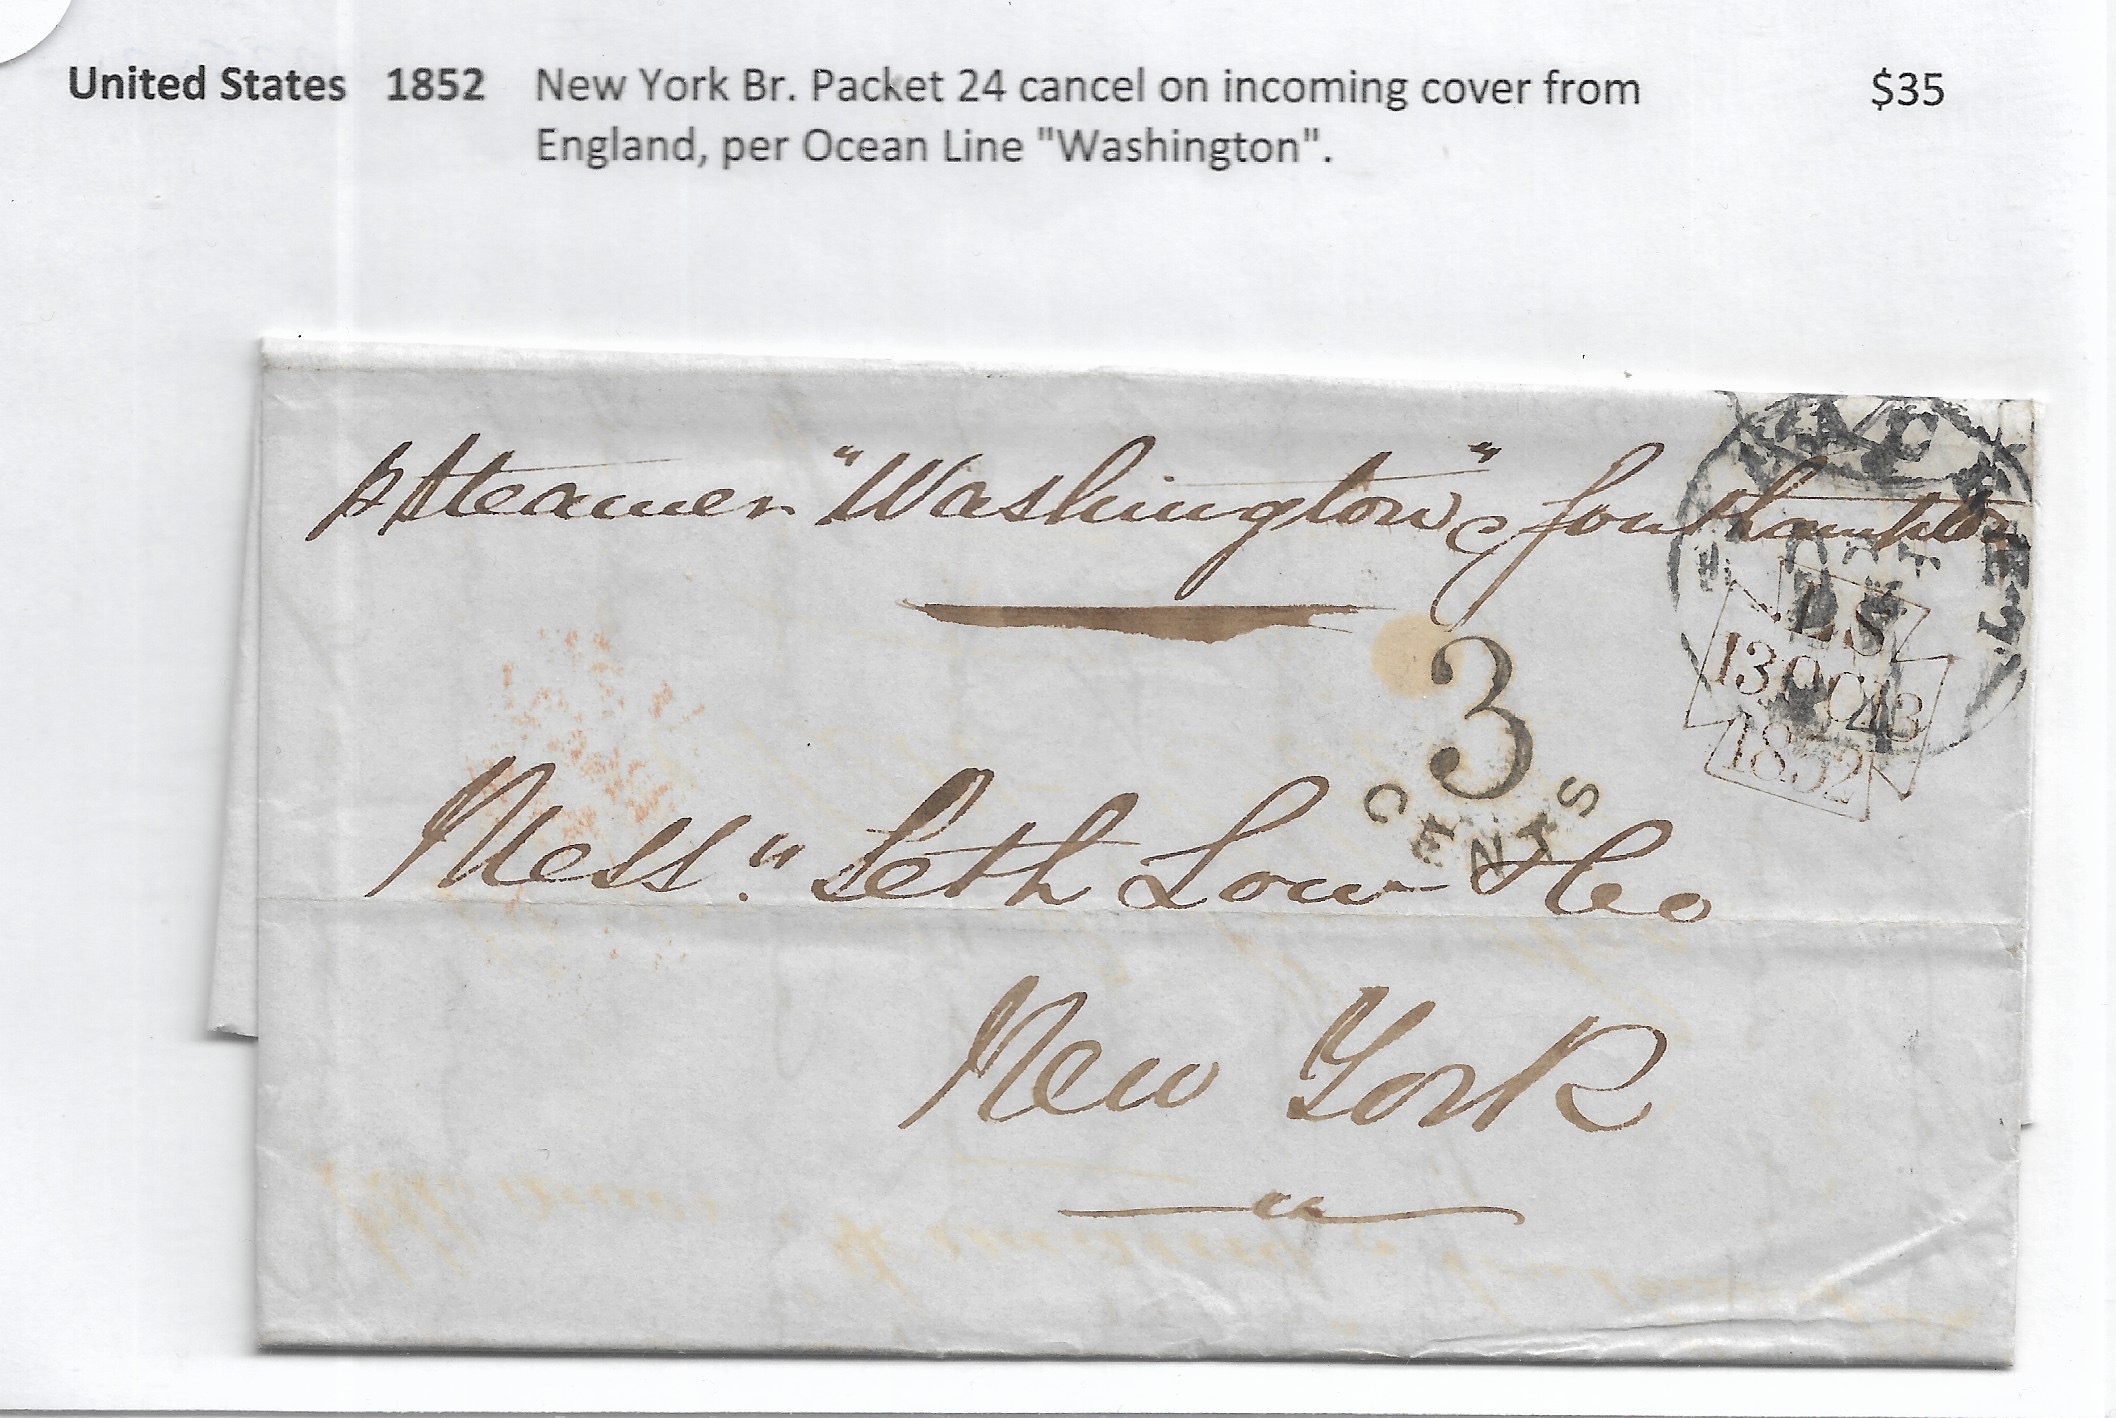 United States 1852 New York Br. Packet 24 cancel on incoming cover from $35
England, per Ocean Line "Washington".
p Steamer "Washington" Southampton
LS
13 OC 13
1852
3
CENTS
Mess." Seth Low & Co
New York